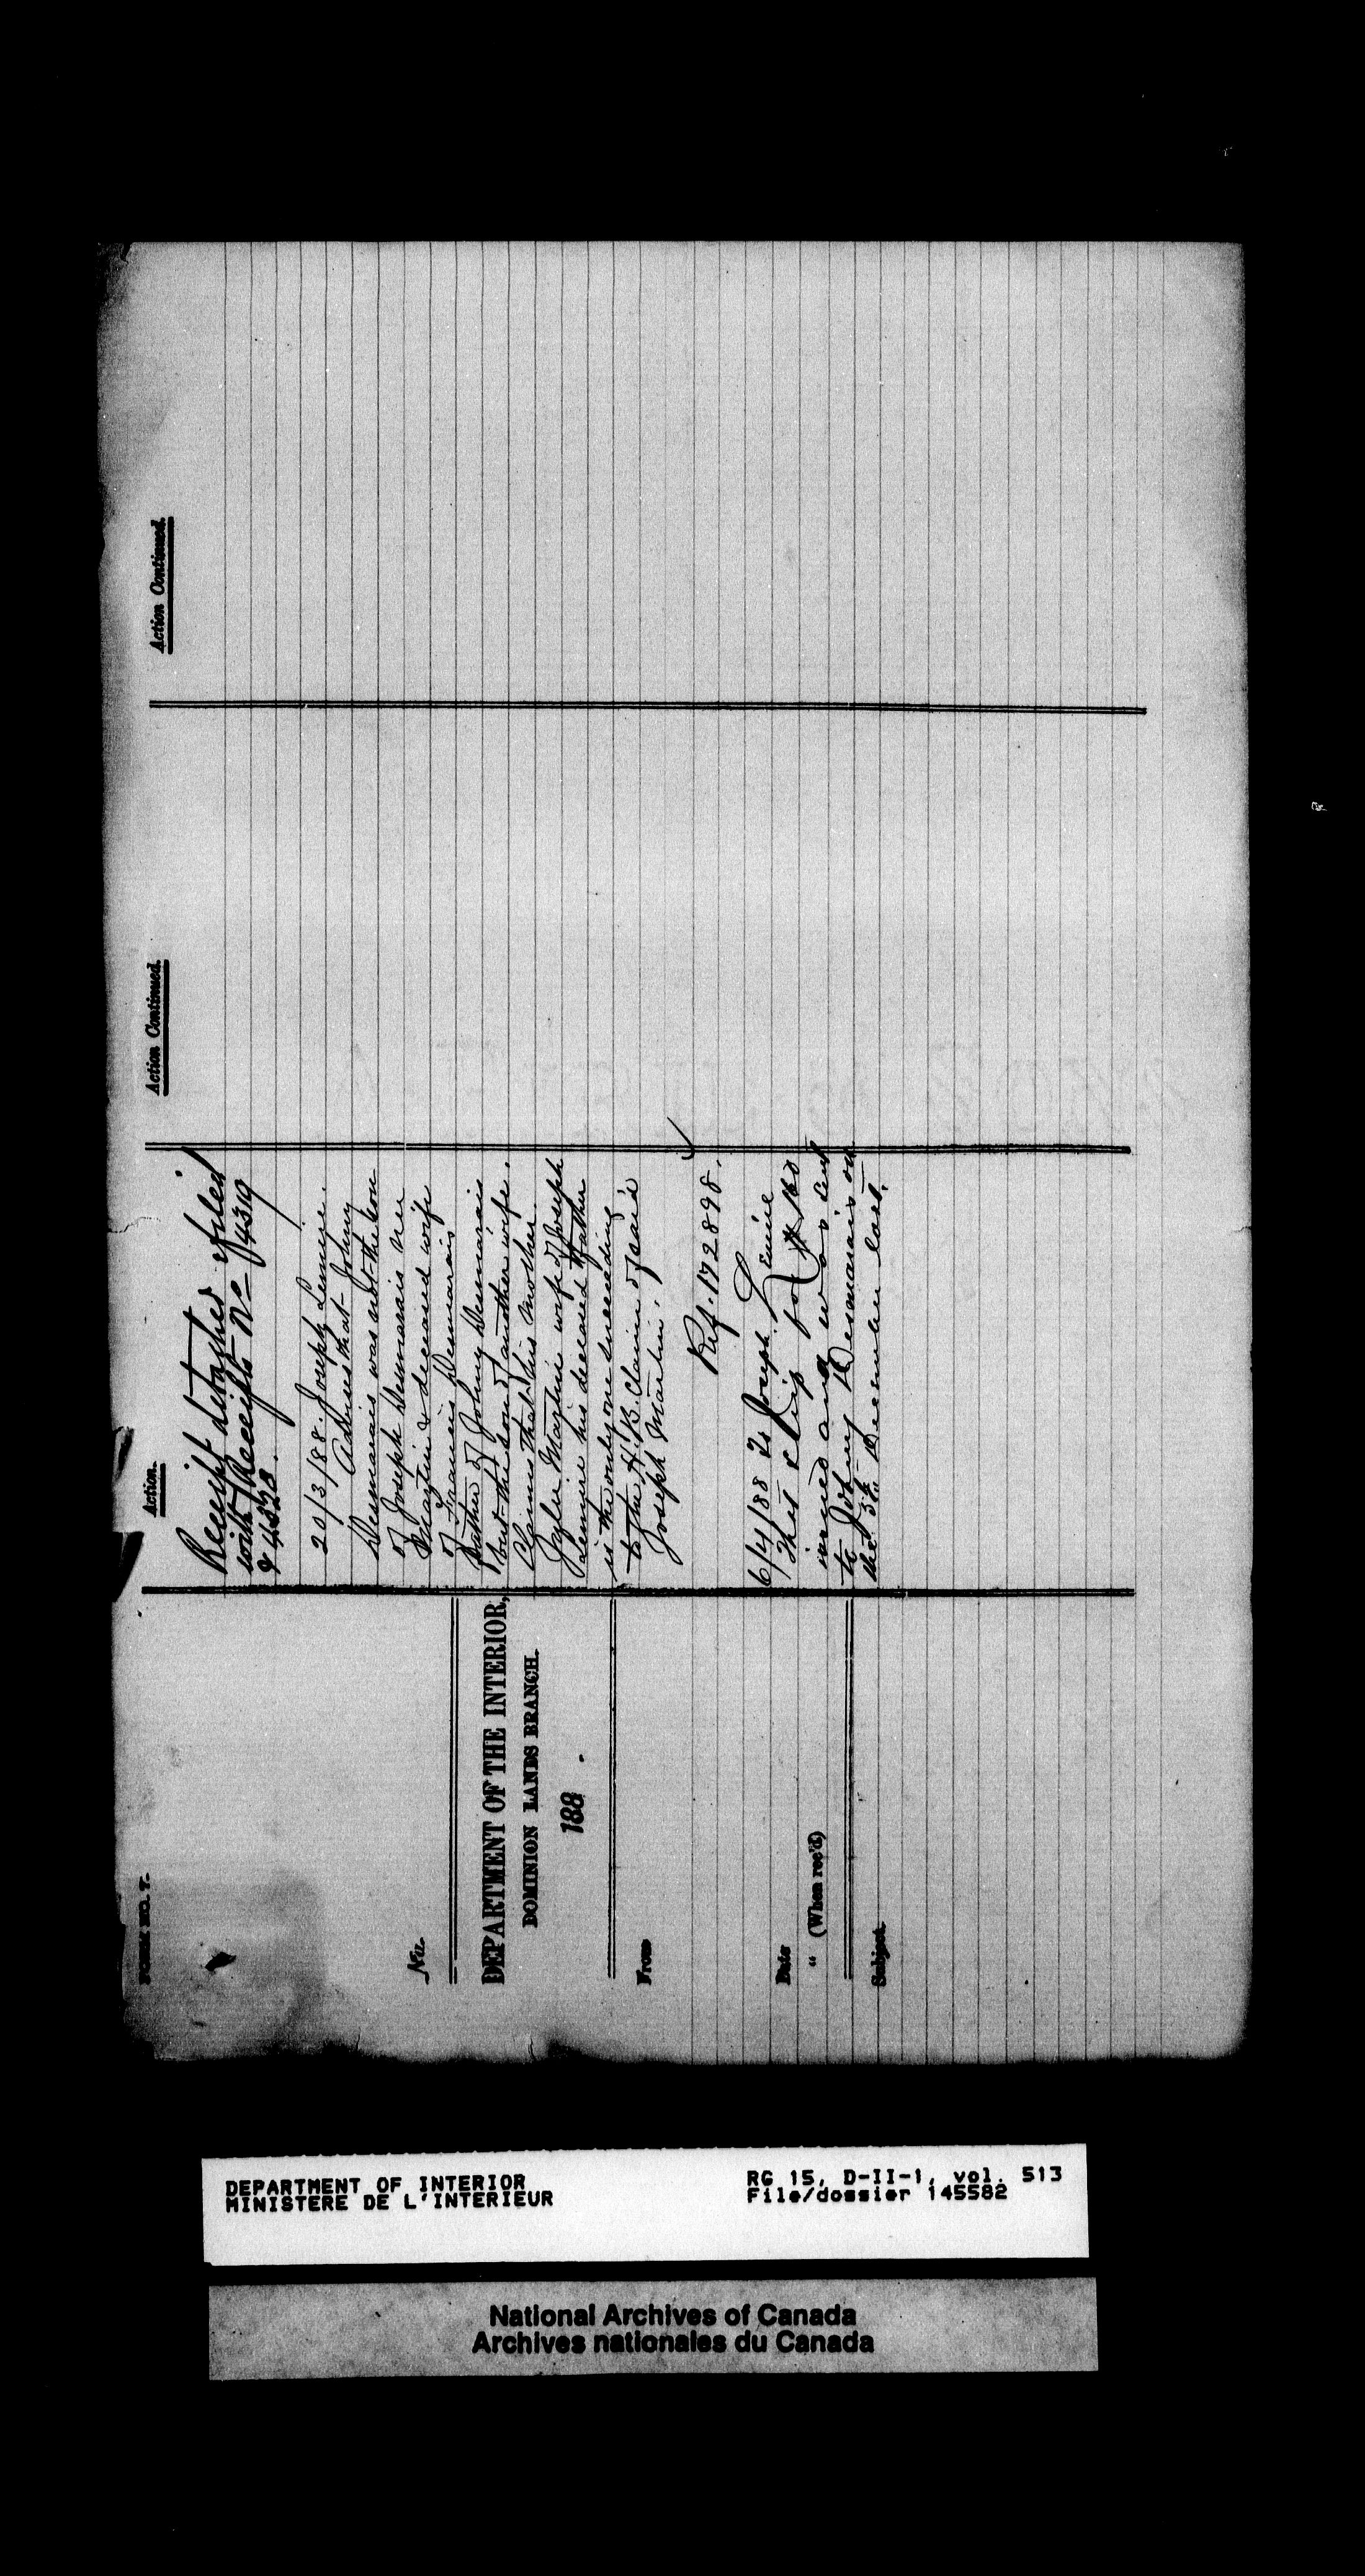 FORM NO. 7.
No.
DEPARTMENT OF THE INTERIOR,
DOMINION LANDS BRANCH.
188 .
From
Date
" (When rec'd)
Subject.
Action.
Receipt detached & filed
with Receipts No 4319
& 4320.
20/3/88. Joseph Lemire.
Advises that Johny
Desmarais was not the son
of Joseph Desmarais nee
Martin & deceased wife
of Francis Desmarais
father of Johny Desmarais
but the son of another wife.
Claims that his mother
Julie Martin wife of Joseph
Lemire his deceased father
is the only one succeeding
to the H.B. Claim of said
Joseph Martin.
Ref. 172898.
6/4/88 To Joseph Lemire
That scrip for $160
issued and was sent
to Johny Desmarais on
the 3rd December last.
Action Continued.
Action Continued.
DEPARTMENT OF INTERIOR
MINISTERE DE L'INTERIEUR
RG 15, D-II-1, vol. 513
File/dossier 145582
National Archives of Canada
Archives nationales du Canada